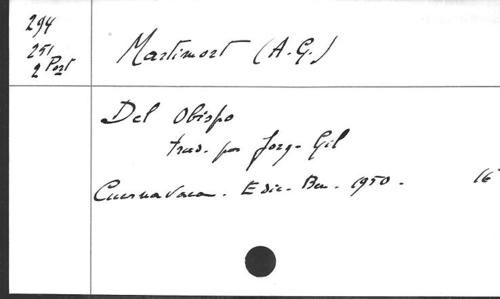 294
251
2 Port
Martimort (A.G.)
Del Obispo
trad. por Jorge Gil
Cuernavaca. Edic. Ben. 1950. 16